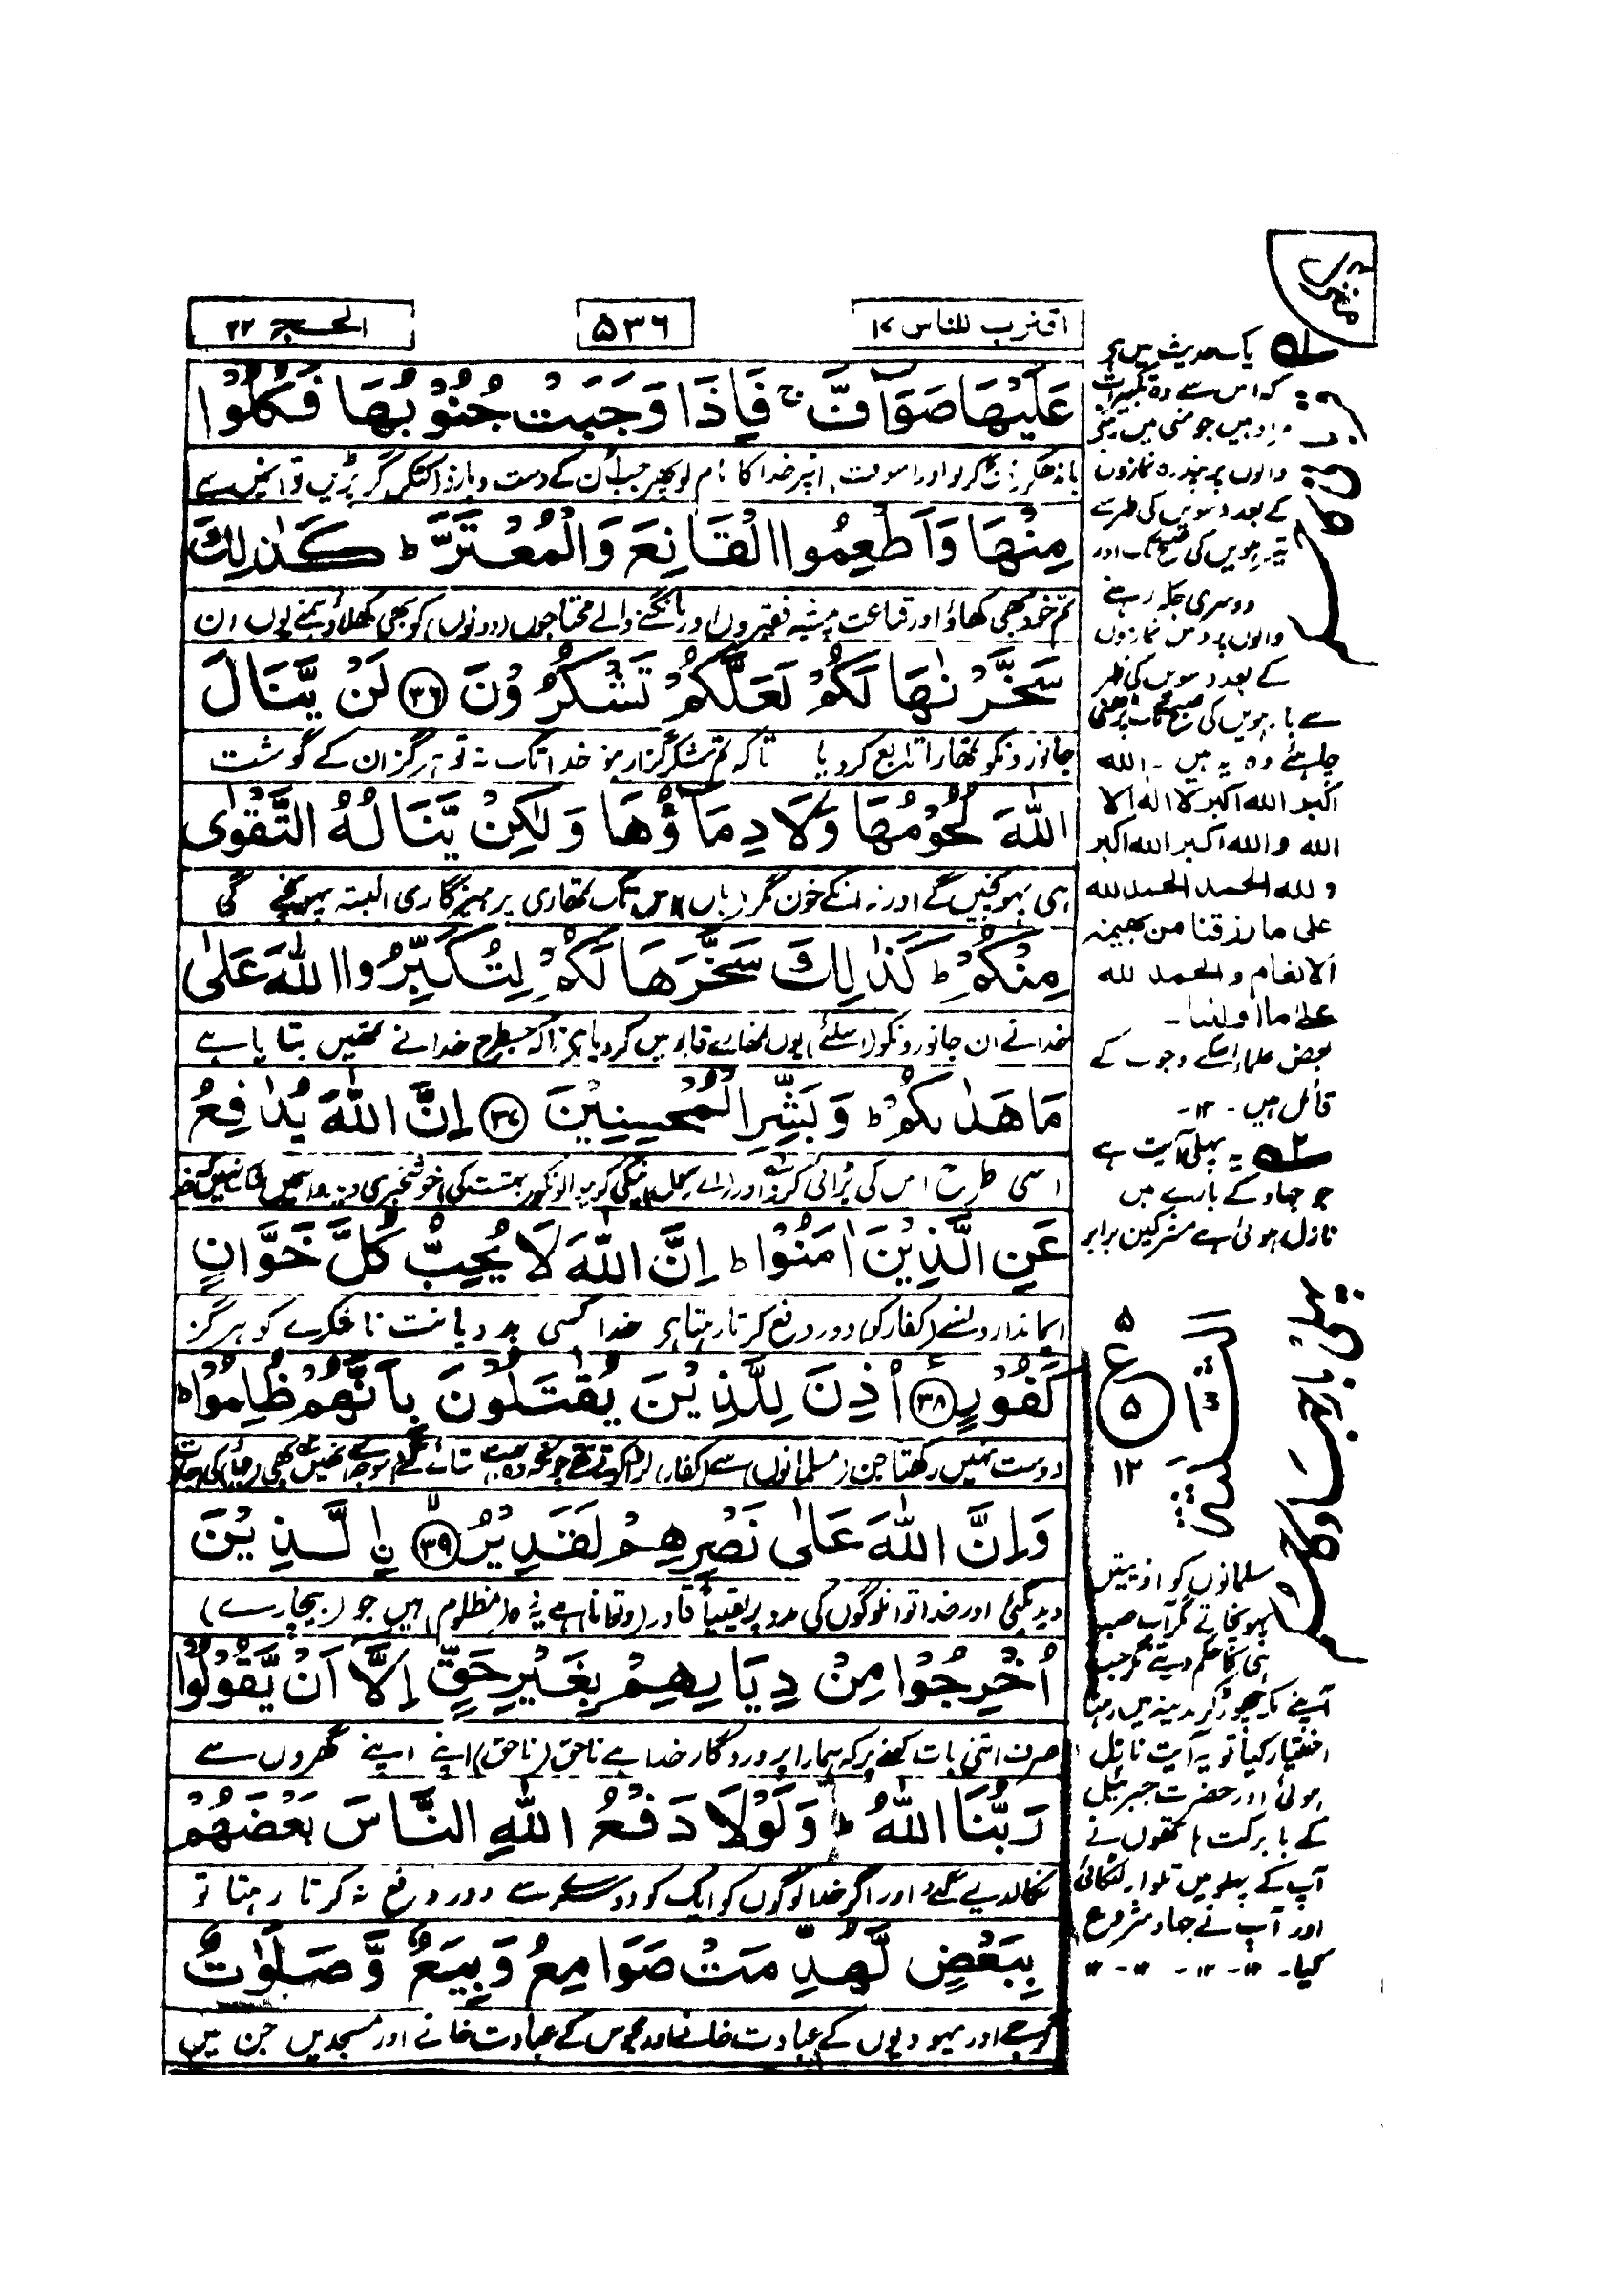 اقترب للناس ١٧
٥٣٦
الحج ٢٢
عَلَيْهَا صَوَآفَّ ج فَاِذَا وَجَبَتْ جُنُوْبُهَا فَكُلُوْا
باندھکر ذبح کرو اور اسوقت انپر خدا کا نام لو پھر جب اُن کے دست و بازو کٹکر گر پڑیں تو انہیں سے
مِنْهَا وَاَطْعِمُوا الْقَانِعَ وَالْمُعْتَرَّ ط كَذٰلِكَ
تم خود بھی کھاؤ اور قناعت پیشہ فقیروں اور مانگنے والے محتاجوں (دونوں) کو بھی کھلاؤ ہمنے یوں ان
سَخَّرْنٰهَا لَكُمْ لَعَلَّكُمْ تَشْكُرُوْنَ ﴿٣٦﴾ لَنْ يَّنَالَ
جانورونکو تمھارا تابع کر دیا تاکہ تم شکر گزار بنو خدا تک نہ تو ہرگز ان کے گوشت
اللّٰهَ لُحُوْمُهَا وَلَا دِمَآؤُهَا وَلٰكِنْ يَّنَالُهُ التَّقْوٰى
ہی پہونچیں گے اور نہ انکے خون مگر (ہاں) اس تک تمھاری پرہیزگاری البتہ پہونچے گی
مِنْكُمْ ط كَذٰلِكَ سَخَّرَهَا لَكُمْ لِتُكَبِّرُوا اللّٰهَ عَلٰى
خدا نے ان جانورونکو (اسلئے) یوں تمھارے قابو میں کر دیا ہے تاکہ جسطرح خدا نے تمھیں بتایا ہے
مَا هَدٰىكُمْ ط وَبَشِّرِ الْمُحْسِنِيْنَ ﴿٣٧﴾ اِنَّ اللّٰهَ يُدٰفِعُ
اسی طرح اس کی بڑائی کرو اور (اے رسول) نیکی کرنیوالونکو بہشت کی خوشخبری دیدو اسمیں شک نہیں کہ خدا
عَنِ الَّذِيْنَ اٰمَنُوْا ط اِنَّ اللّٰهَ لَا يُحِبُّ كُلَّ خَوَّانٍ
ایماندارونسے (کفار کو) دور دفع کرتا رہتا ہے خدا کسی بد دیانت ناشکرے کو ہرگز
كَفُوْرٍ ﴿٣٨﴾ اُذِنَ لِلَّذِيْنَ يُقٰتَلُوْنَ بِاَنَّهُمْ ظُلِمُوْا ط
دوست نہیں رکھتا جن (مسلمانوں) سے (کفار) لڑا کرتے تھے چونکہ وہ بہت ستائے گئے اسوجہ سے انھیں بھی (جہاد) کی اجازت
وَاِنَّ اللّٰهَ عَلٰى نَصْرِهِمْ لَقَدِيْرٌ ﴿٣٩﴾ نِ الَّذِيْنَ
دیدی گئی اور خدا تو ان لوگوں کی مدد پر یقیناً قادر (و توانا) ہے یہ وہ (مظلوم) ہیں جو (بیچارے)
اُخْرِجُوْا مِنْ دِيَارِهِمْ بِغَيْرِ حَقٍّ اِلَّآ اَنْ يَّقُوْلُوْا
صرف اتنی بات کہنے پر کہ ہمارا پروردگار خدا ہے ناحق (ناحق) اپنے اپنے گھروں سے
رَبُّنَا اللّٰهُ ط وَلَوْلَا دَفْعُ اللّٰهِ النَّاسَ بَعْضَهُمْ
نکالدیے گئے اور اگر خدا لوگوں کو ایک کو دوسرے سے دور دفع نہ کرتا رہتا تو
بِبَعْضٍ لَّهُدِّمَتْ صَوَامِعُ وَبِيَعٌ وَّصَلَوٰتٌ
گرجے اور یہودیوں کے عبادت خانے اور مجوس کے عبادت خانے اور مسجدیں جن میں
١ ایک حدیث میں ہے
کہ اس سے وہ تکبیرات
مراد ہیں جو منیٰ میں رہنے
والوں پر پندرہ نمازوں
کے بعد دسویں کی ظہر سے
تیرہویں کی صبح تک اور
دوسری جگہ رہنے
والوں پر دس نمازوں
کے بعد دسویں کی ظہر
سے بارہویں کی صبح تک پڑھنی
چاہئے وہ یہ ہیں ۔ الله
اكبر الله اكبر لا اله الا
الله والله اكبر الله اكبر
ولله الحمد الحمد لله
على ما رزقنا من بهيمة
الانعام والحمد لله
على ما اولنيا ۔
بعض علما اسکے وجوب کے
قائل ہیں ۔ ۱۲۔
٢ یہ پہلی آیت ہے
جو جہاد کے بارے میں
نازل ہوئی ہے مشرکین برابر
۵
ع
۵
۱۲
مسلمانوں کو اذیتیں
پہونچاتے مگر آپ صبر
ہی کا حکم دیتے مگر جب
آپنے مکہ چھوڑ کر مدینہ میں رہنا
اختیار کیا تو یہ آیت نازل
ہوئی اور حضرت جبرئیل
کے بابرکت ہاتھوں نے
آپ کے پہلو میں تلوار لٹکائی
اور آپ نے جہاد شروع
کیا۔ ۱۲۔ ۱۲۔ ۱۲۔ ۱۲